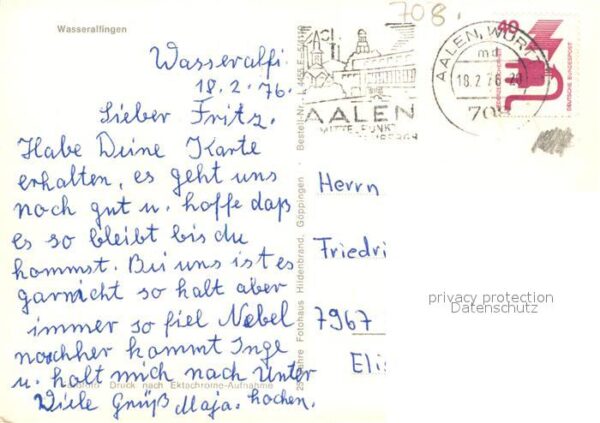 Wasseralfingen
Wasseralfi.
18.2.76.
Lieber Fritz.
Habe Deine Karte
erhalten, es geht uns
noch gut u. hoffe daß
es so bleibt bis du
kommst. Bei uns ist es
garnicht so kalt aber
immer so fiel Nebel
nachher kommt Inge
u. holt mich nach Unter
kochen.
Viele Grüß Maja.
Druck nach Ektachrome-Aufnahme
25 Jahre Fotohaus Hildenbrand, Göppingen · Bestell-Nr.
708.
AALEN
MITTELPUNKT
AALEN, WÜRTT
md
18.2.76-20
708
40
DEUTSCHE BUNDESPOST
Herrn
Friedri
7967
Eli
privacy protection
Datenschutz